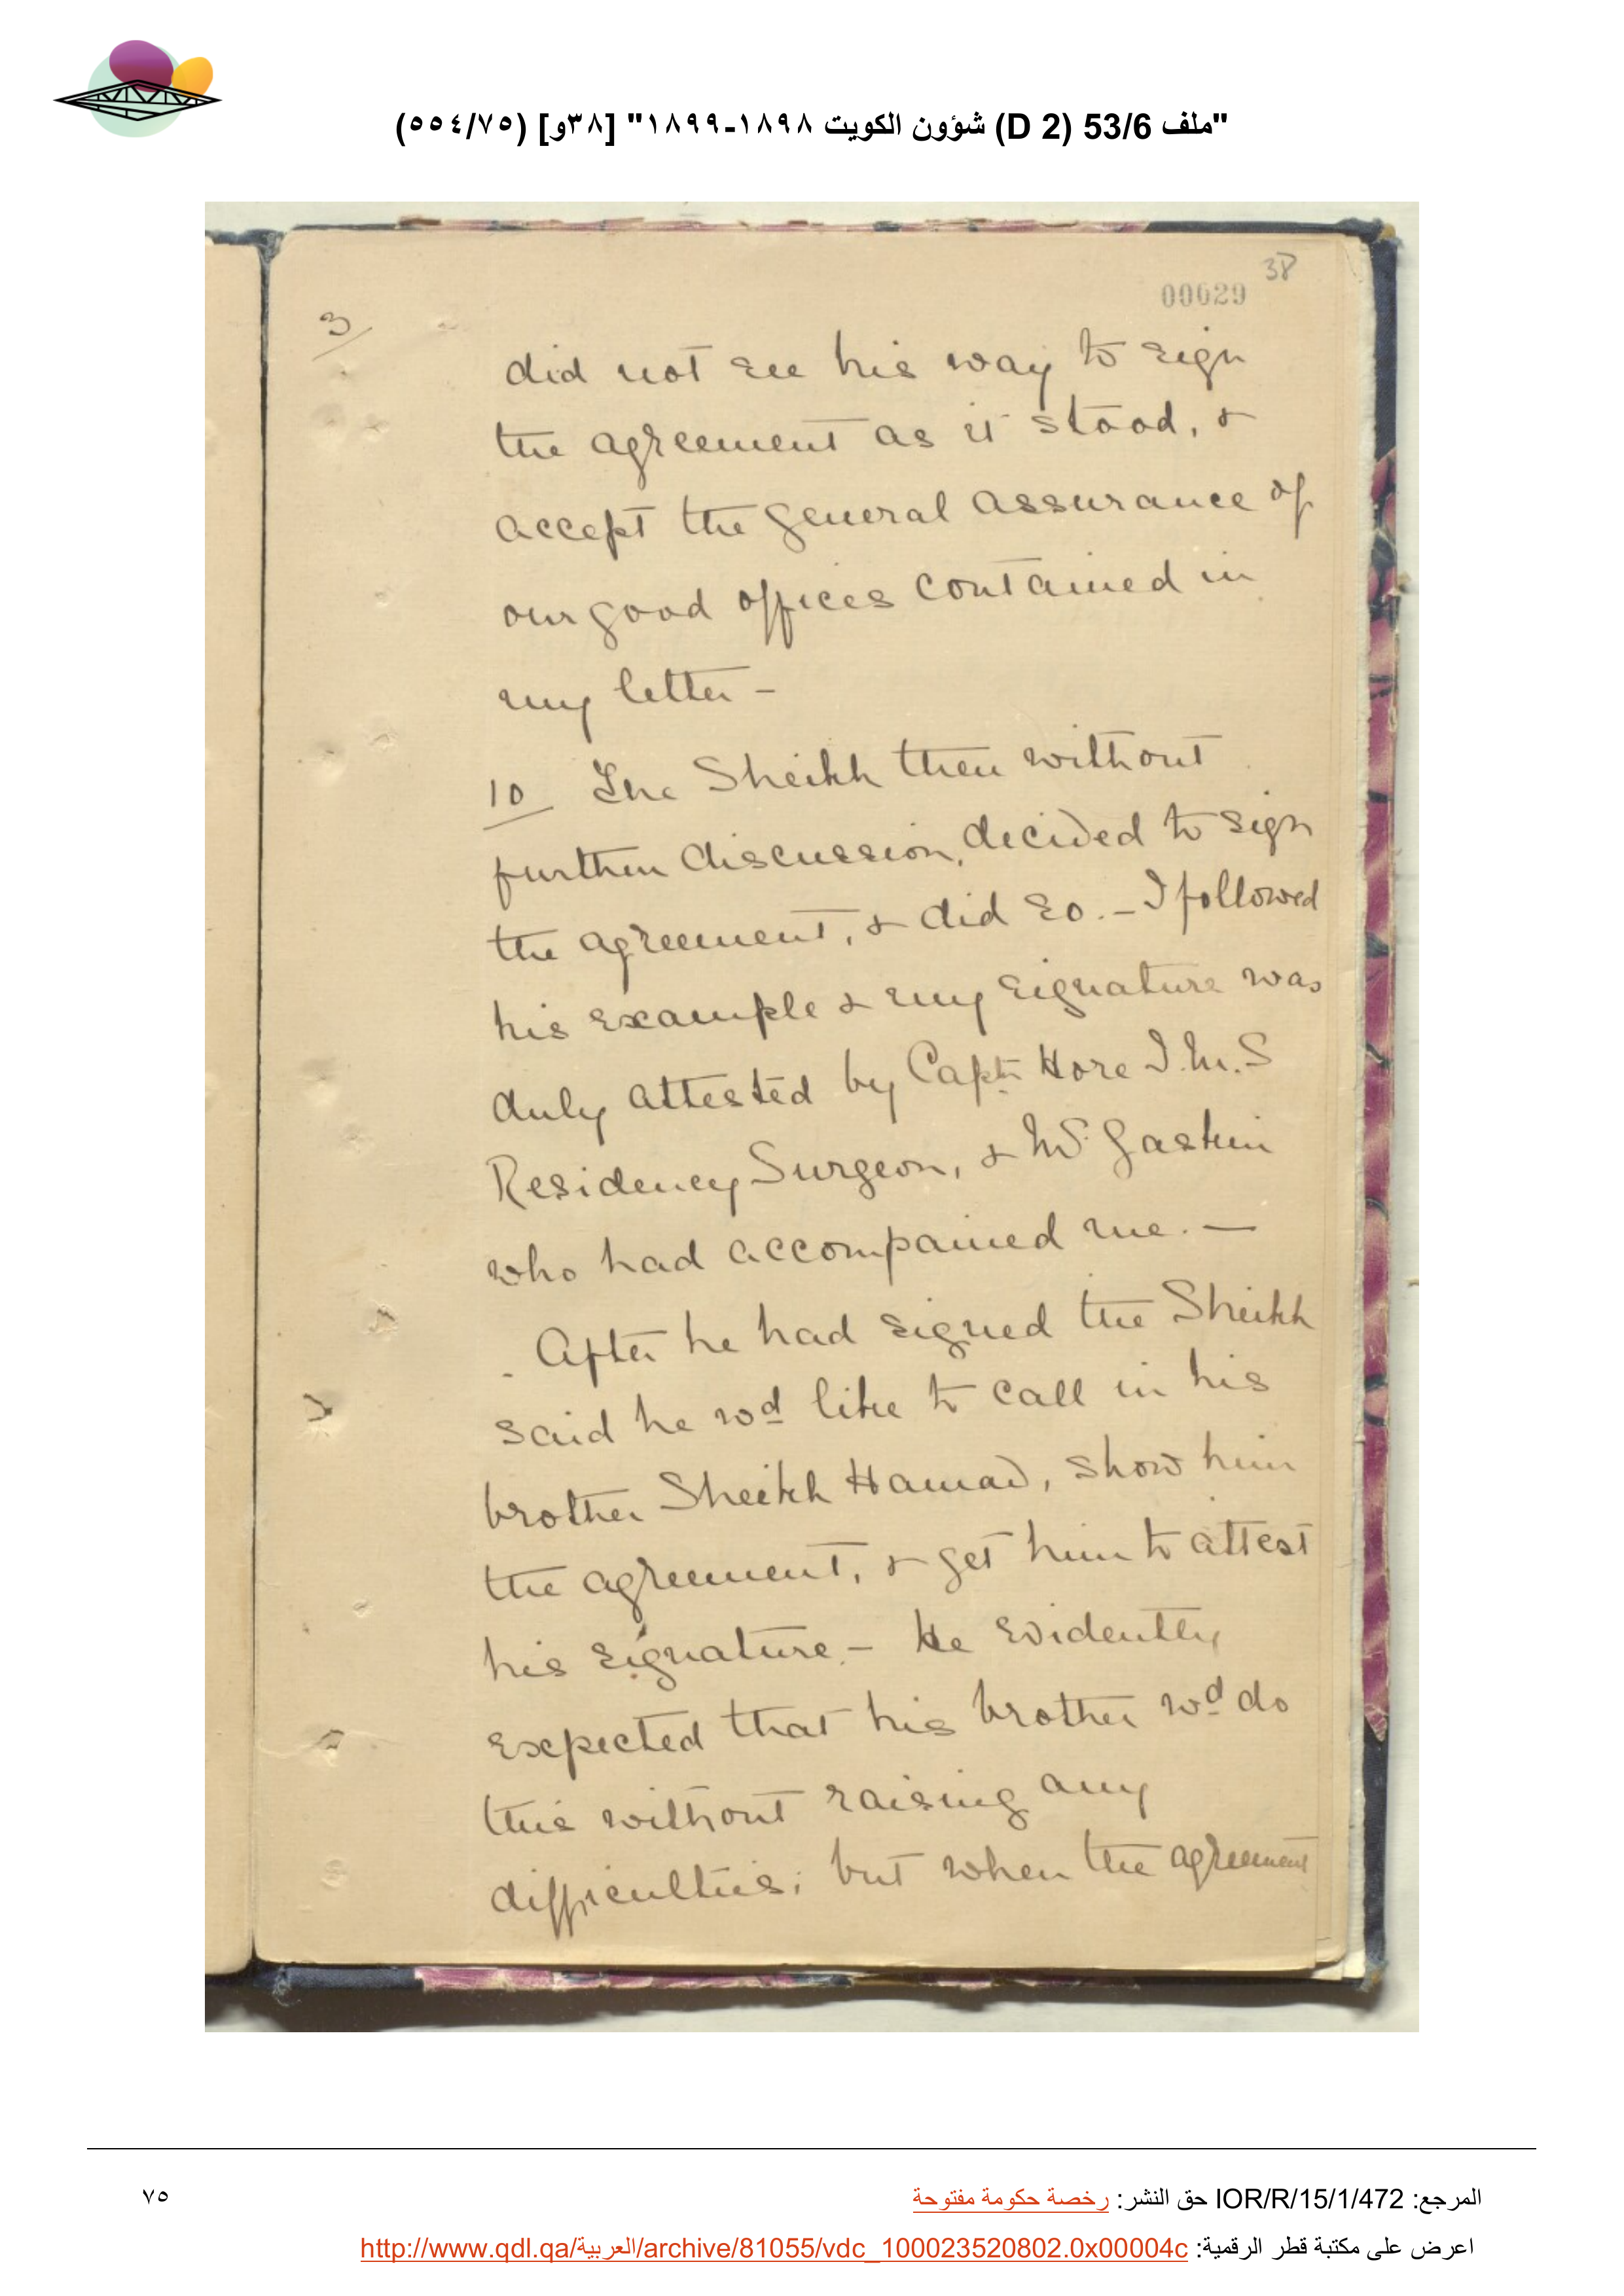 "ملف 53/6 (D 2) شؤون الكويت ١٨٩٨-١٨٩٩" [٣٨و] (٥٥٤/٧٥)
38
00029
3
did not see his way to sign
the agreement as it stood, &
accept the general assurance of
our good offices contained in
my letter -
10 The Sheikh then without
further discussion, decided to sign
the agreement, & did so. - I followed
his example & my signature was
duly attested by Captn Hore I.M.S
Residency Surgeon, & Mr Gaskin
who had accompanied me. -
After he had signed the Sheikh
said he wd like to call in his
brother Sheikh Hamad, show him
the agreement, & get him to attest
his signature. - He evidently
expected that his brother wd do
this without raising any
difficulties; but when the agreement
المرجع: IOR/R/15/1/472 حق النشر: رخصة حكومة مفتوحة
٧٥
اعرض على مكتبة قطر الرقمية: http://www.qdl.qa/العربية/archive/81055/vdc_100023520802.0x00004c